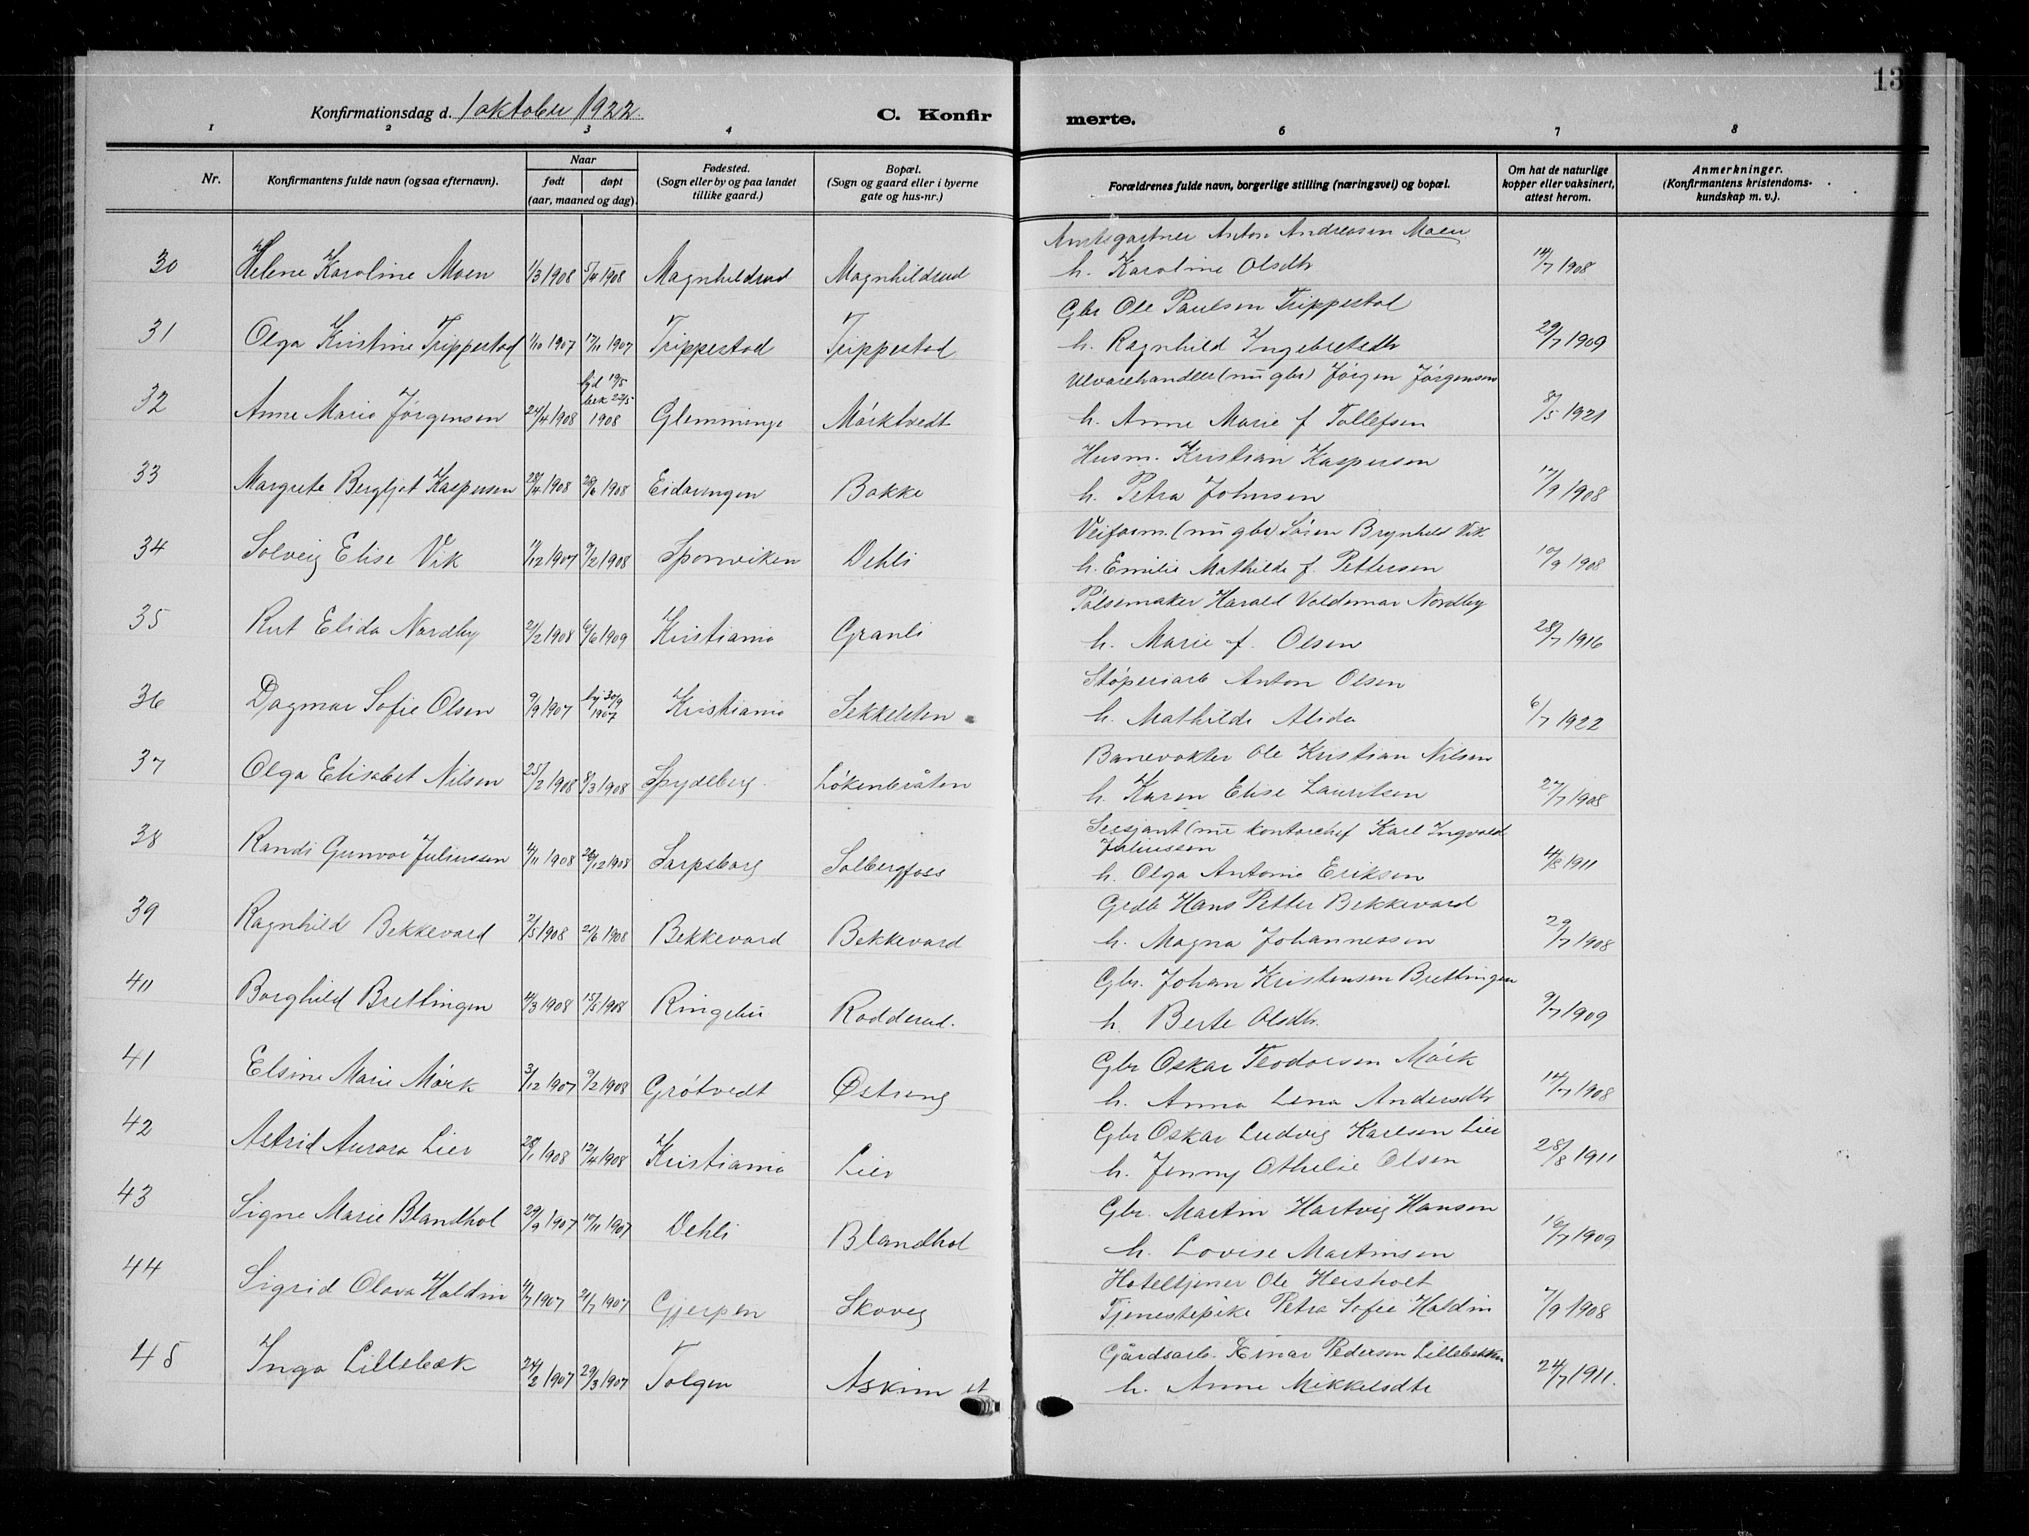 13
Konfirmationsdag d. 1 oktober 1922.
C. Konfirmerte.
1 2 3 4 6 7 8
Nr.
Konfirmantens fulde navn (ogsaa efternavn).
Naar
født døpt
(aar, maaned og dag).
Fødested.
(Sogn eller by og paa landet
tillike gaard.)
Bopæl.
(Sogn og gaard eller i byerne
gate og hus-nr.)
Forældrenes fulde navn, borgerlige stilling (næringsvei) og bopæl.
Om hat de naturlige
kopper eller vaksinert,
attest herom.
Anmerkninger.
(Konfirmantens kristendoms-
kundskap m. v.).
Amtsgartner Anton Andreasen Moen
30 Helene Karoline Moen 1/3 1908 5/4 1908 Magnhildrud Magnhildrud h. Karoline Olsdtr 14/7 1908
Gbr Ole Paulsen Trippestad
31 Olga Kristine Trippestad 1/10 1907 17/11 1907 Trippestad Trippestad h. Ragnhild Ingebretsdtr 29/7 1909
Ulvarehandler (nu gbr) Jørgen Jørgensen
32 Anne Marie Jørgensen 24/4 1908 hjd 19/5 bek 22/5 1908 Glemminge Mörktvedt h. Anne Marie f Tollefsen 8/5 1921
Husm. Kristian Kaspersen
33 Margrete Bergljot Kaspersen 28/4 1908 28/6 1908 Eidsvingen Bakke h. Petra Johnsen 17/9 1908
Veiform. (nu gbr) Søren Brynhild Vik
34 Solveig Elise Vik 11/12 1907 9/2 1908 Sponviken Dehli h. Emilie Mathilde f. Pettersen 10/9 1908
Pølsemaker Harald Valdemar Nordby
35 Rut Elida Nordby 21/2 1908 6/6 1909 Kristiania Granli h. Marie f. Olsen 28/7 1916
Støperiarb Anton Olsen
36 Dagmar Sofie Olsen 9/9 1907 hj 30/9 1907 Kristiania Sekkelsten h. Mathilde Alida 6/7 1922
Banevokter Ole Kristian Nilsen
37 Olga Elisabet Nilsen 25/2 1908 8/3 1908 Spydeberg Løkenbråten h. Karen Elise Lauritsen 27/7 1908
Sersjant (nu kontorchef Karl Ingvald
Juliussen
38 Randi Gunvor Juliussen 4/11 1908 26/12 1908 Sarpsborg Solbergfoss h. Olga Antonie Eriksen 14/8 1911
Grdb Hans Petter Bekkevard
39 Ragnhild Bekkevard 2/5 1908 21/6 1908 Bekkevard Bekkevard h. Magna Johannessen 29/7 1908
Gbr. Johan Kristensen Brettingen
40 Borghild Brettingen 4/3 1908 15/5 1908 Ringebu Rodderud. h. Berte Olsdtr. 9/7 1909
Gbr Oskar Teodorsen Mörk
41 Elsine Marie Mörk 3/12 1907 9/2 1908 Grøtvedt Østreng h. Anna Lena Andersdtr 14/7 1908
Gbr Oskar Ludvig Karlsen Lier
42 Astrid Aurora Lier 28/1 1908 12/4 1908 Kristiania Lier h. Jenny Othilie Olsen 28/8 1911
Gbr. Martin Hartvig Hansen
43 Signe Marie Blandhol 29/9 1907 10/11 1907 Dehli Blandhol h. Lovise Martinsen 16/7 1909
Hoteltjener Ole Heisholt
44 Sigrid Olava Haldin 4/7 1907 21/7 1907 Gjerpen Skoveg Tjenestepike Petra Sofie Haldin 7/9 1908
Gårdsarb. Einar Pedersen Lillebekken
45 Inga Lillebæk 24/2 1907 29/3 1907 Tolgen Askim st h. Anne Mikkelsdtr 24/7 1911.